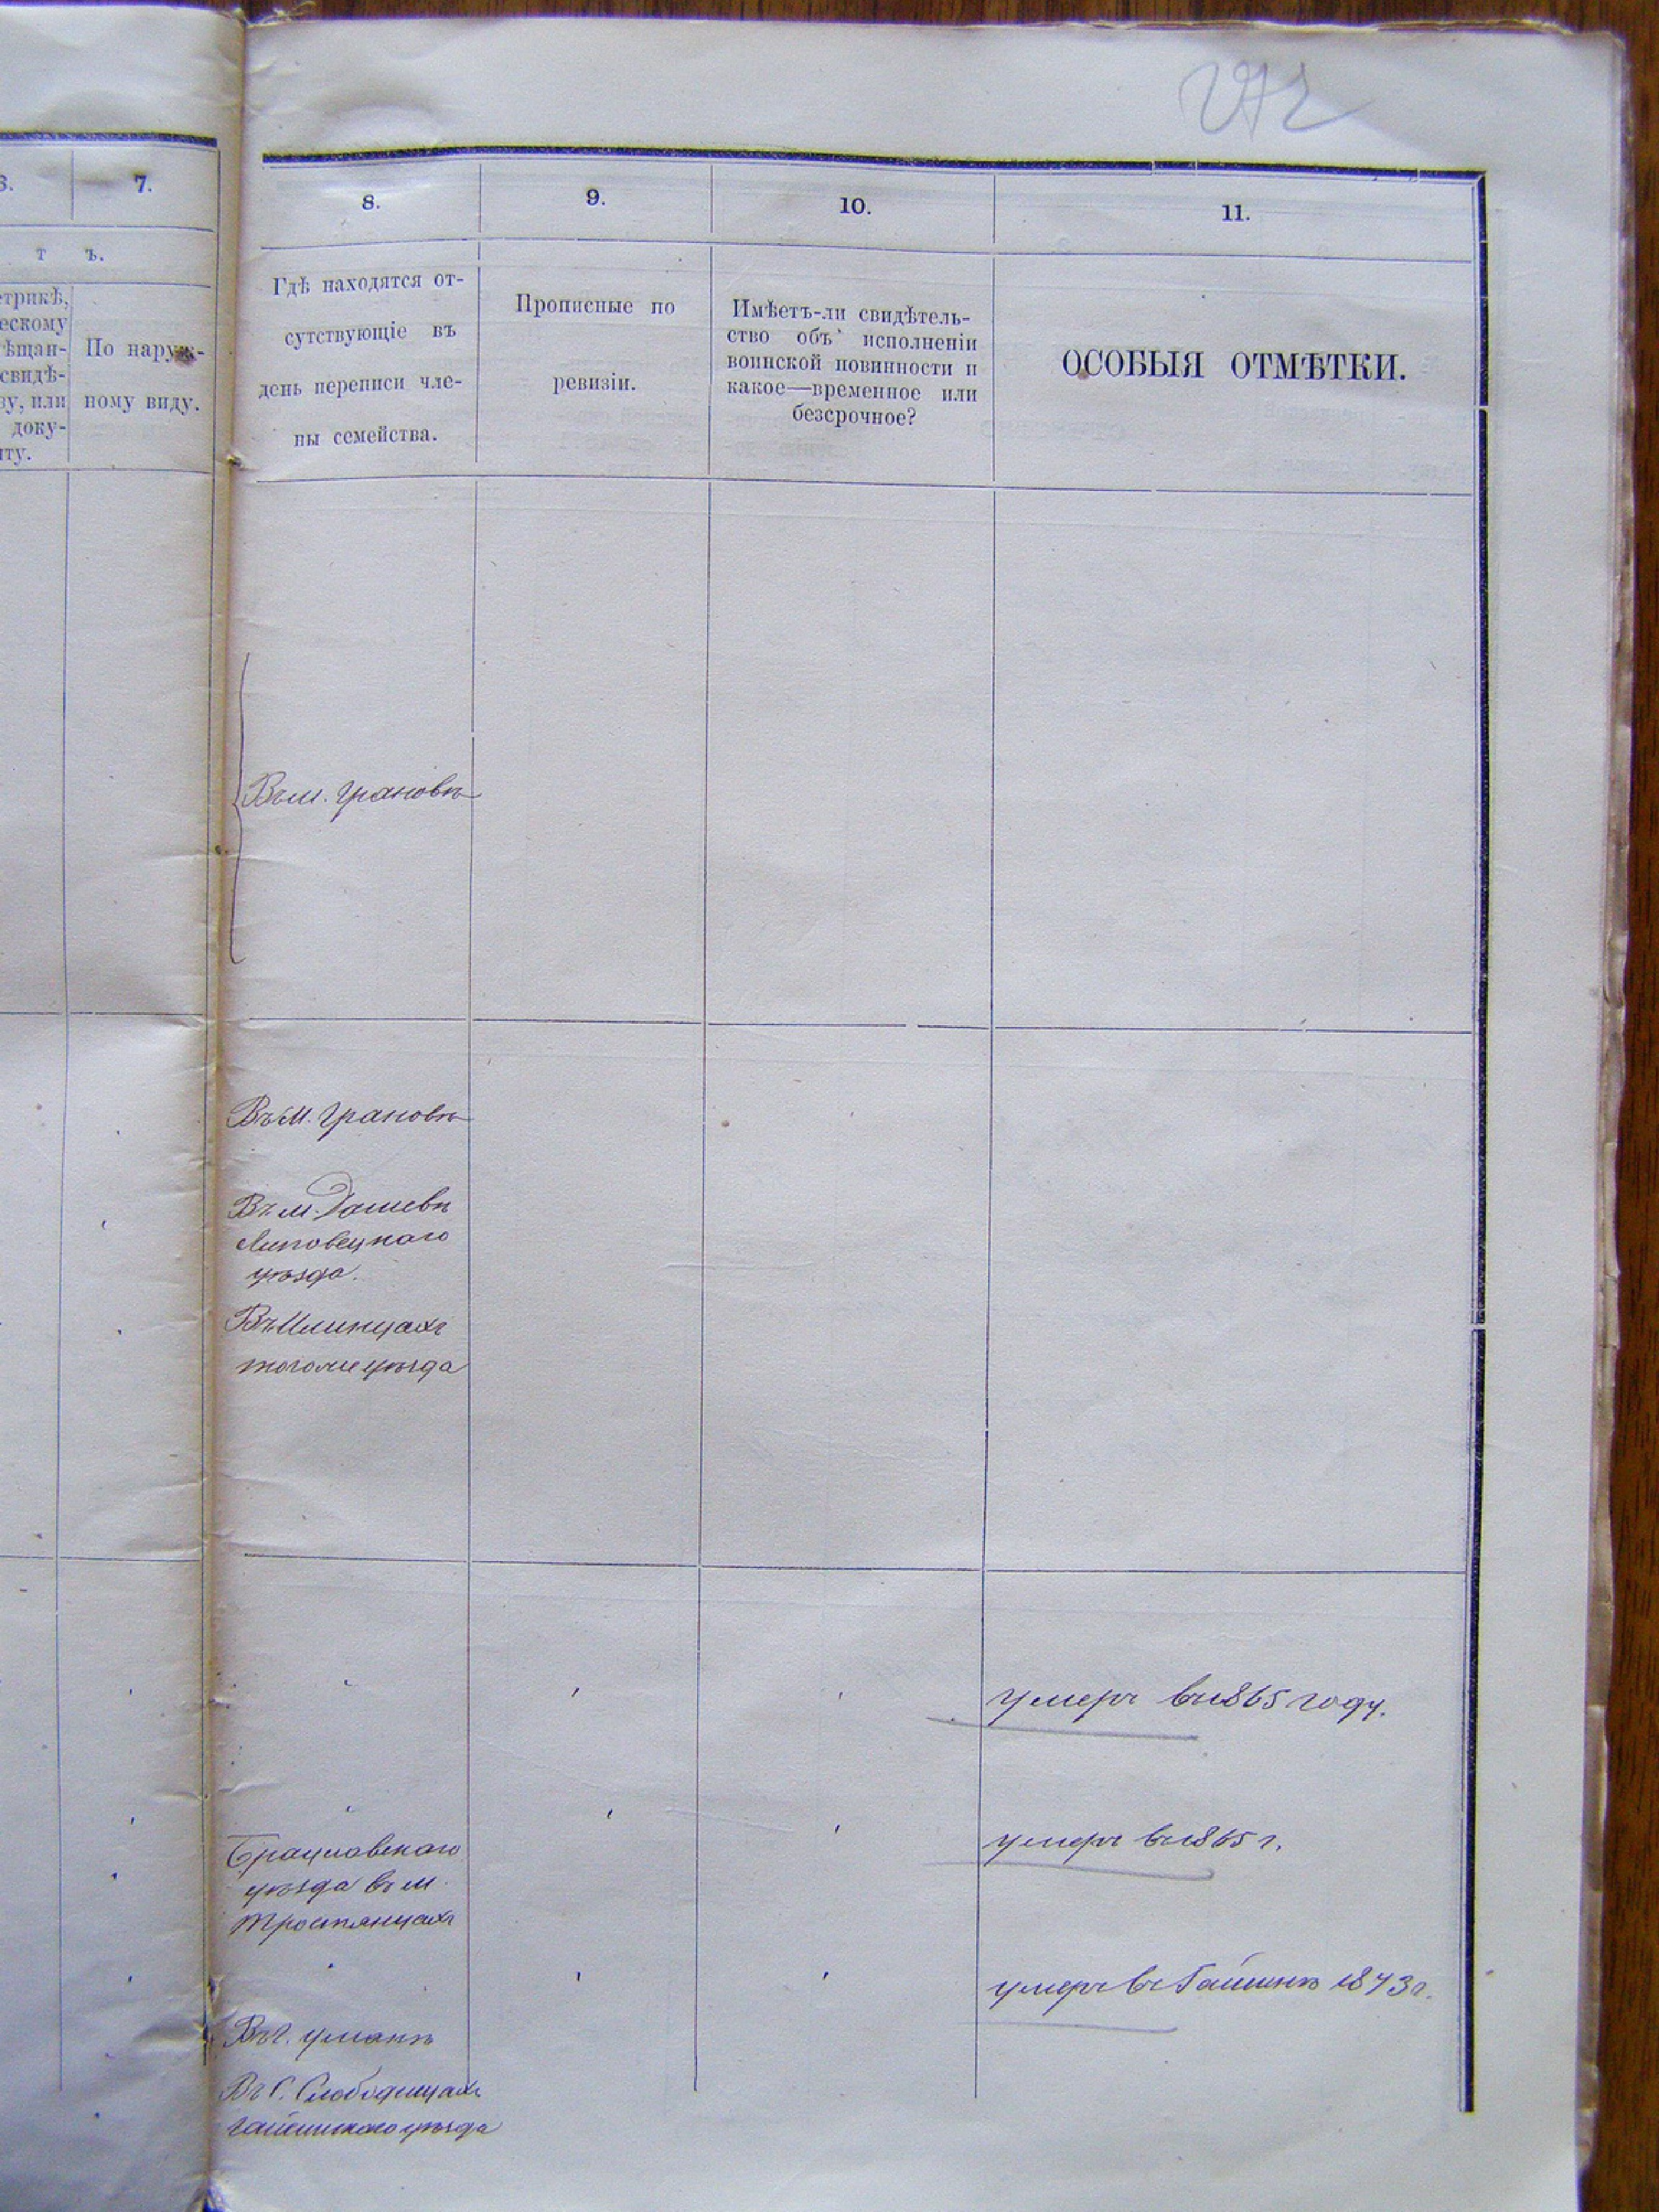 6.
7.
т ъ.
етрикѣ,
ескому
ѣщан-
свидѣ-
ву, или
доку-
нту.
По наруж-
ному виду.
8.
9.
10.
11.
Гдѣ находятся от-
сутствующіе въ
день переписи чле-
ны семейства.
Прописные по
ревизіи.
Имѣетъ-ли свидѣтель-
ство объ исполненіи
воинской повинности и
какое—временное или
безсрочное?
ОСОБЫЯ ОТМѢТКИ.
Въ м. Грановѣ
Въ м. Грановѣ
Въ м. Дашевѣ
Липовецкаго
уѣзда.
Въ Илинцахъ
того же уѣзда
умеръ въ 1865 году.
умеръ въ 1865 г.
Брацлавскаго
уѣзда въ м.
Тростянцахъ
умеръ въ Гайсинѣ 1873 г.
Въ г. Уманѣ
Въ С. Слободищахъ
Гайсинскаго уѣзда